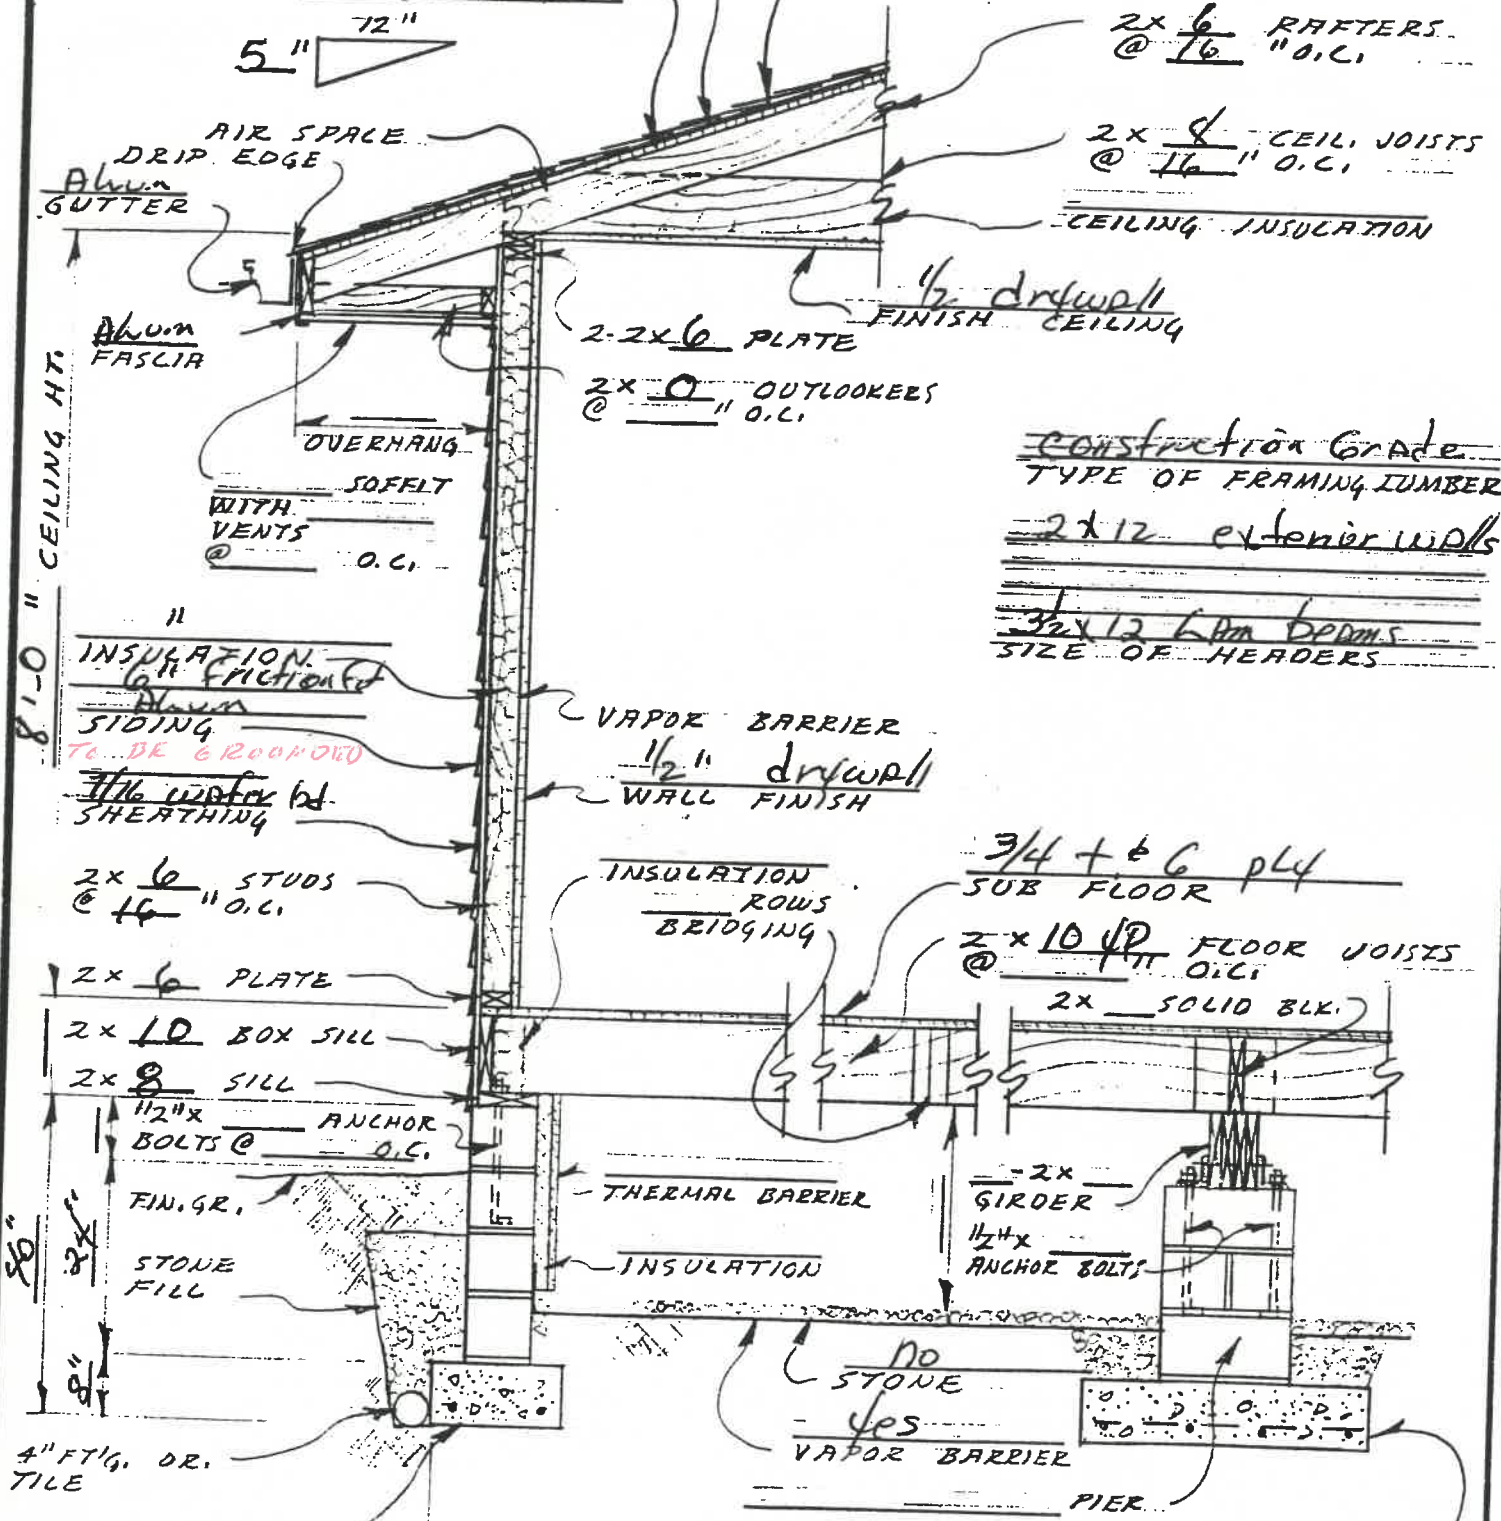 12"
5"
2x 6 RAFTERS
@ 16 "O.C.
AIR SPACE
DRIP EDGE
2x 8 CEIL. JOISTS
@ 16 " O.C.
Alum
GUTTER
CEILING INSULATION
1/2 drywall
FINISH CEILING
Alum
FASCIA
2-2x 6 PLATE
2x 0 OUTLOOKERS
@ " O.C.
OVERHANG
SOFFIT
WITH
VENTS
@ O.C.
8'-0" CEILING HT.
Construction Grade
TYPE OF FRAMING LUMBER
2x12 exterior walls
3 1/2 x 12 Lam beams
SIZE OF HEADERS
"
INSULATION
6" Friction Fit
Alum
SIDING
TO BE GROUNDED
7/16 wafer bd
SHEATHING
VAPOR BARRIER
1/2" drywall
WALL FINISH
2x 6 STUDS
@ 16 "O.C.
INSULATION
ROWS
BRIDGING
3/4 t & G ply
SUB FLOOR
2 x 10 YP FLOOR JOISTS
@ " O.C.
2x SOLID BLK.
2x 6 PLATE
2x 10 BOX SILL
2x 8 SILL
1/2"x ANCHOR
BOLTS @ O.C.
FIN. GR.
THERMAL BARRIER
-2x
GIRDER
1/2"x
ANCHOR BOLTS
STONE
FILL
INSULATION
24"
8"
no
STONE
yes
VAPOR BARRIER
4" FT'G. DR.
TILE
PIER